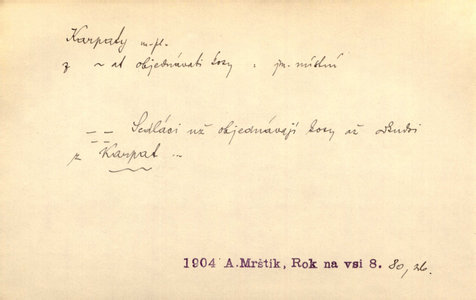 Karpaty m-pl.
z ~ at objednávati kosy : jm. místní
Sedláci už objednávají kosy až odkudsi
z Karpat ...
1904 A.Mrštík, Rok na vsi 8. 80, 26.